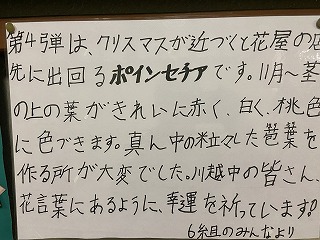 第4弾は、クリスマスが近づくと花屋の店
先に出回るポインセチアです。11月〜茎
の上の葉がきれいに赤く、白く、桃色
に色づきます。真ん中の粒々した苞葉を
作る所が大変でした。川越中の皆さん、
花言葉にあるように、幸運を祈っています!
6組のみんなより